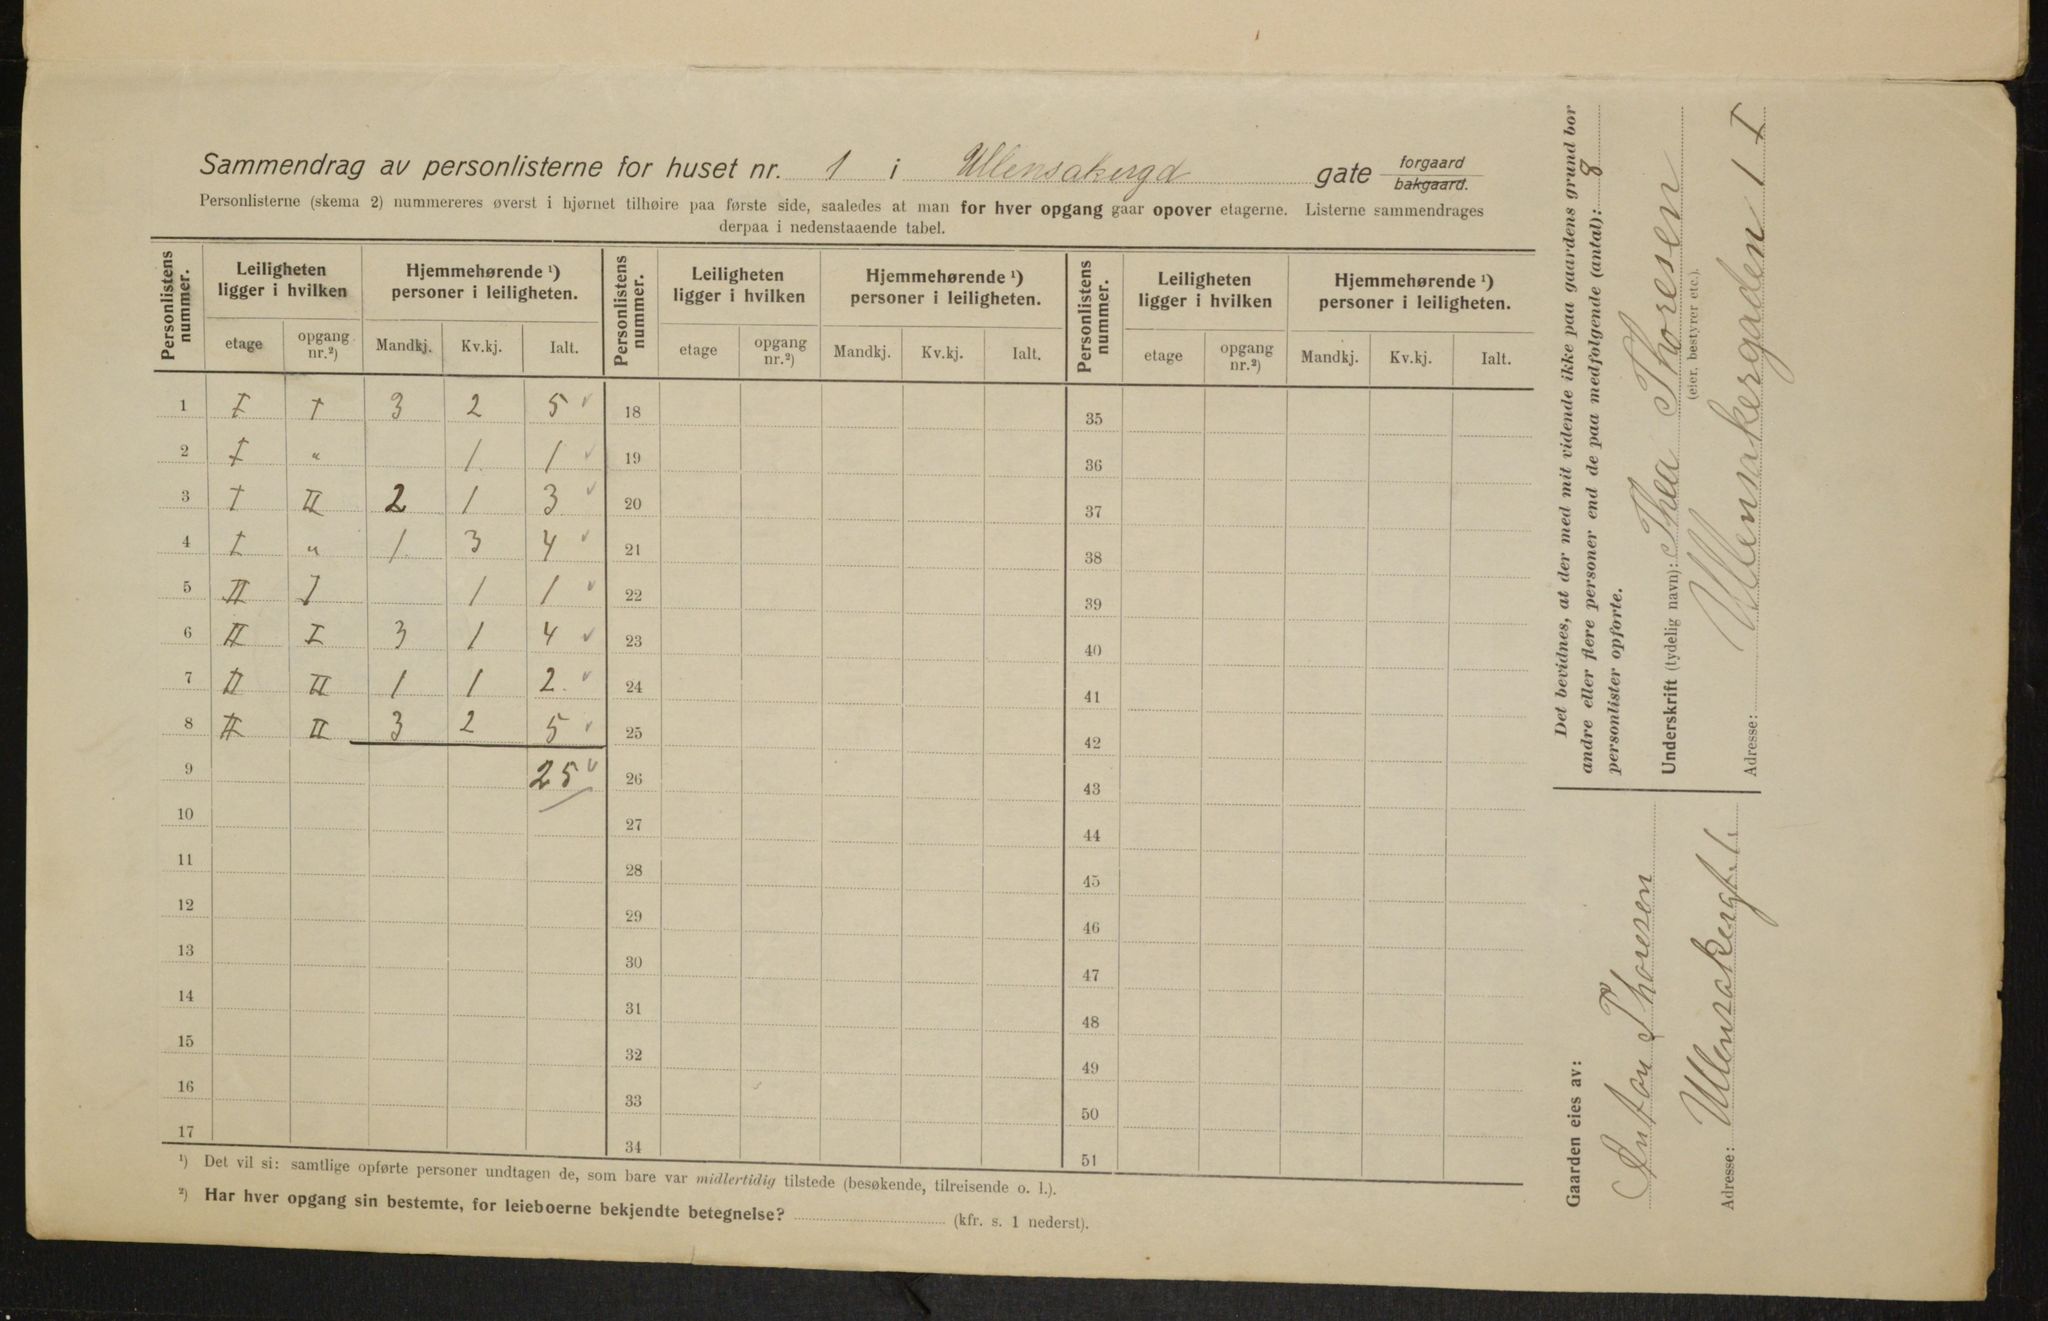 Sammendrag av personlisterne for huset nr. 1 i Ullensakergd gate forgaard bakgaard.
Personlisterne (skema 2) nummereres øverst i hjørnet tilhøire paa første side, saaledes at man for hver opgang gaar opover etagerne. Listerne sammendrages
derpaa i nedenstaaende tabel.
Personlistens nummer. Leiligheten ligger i hvilken Hjemmehørende ¹) personer i leiligheten. Personlistens nummer. Leiligheten ligger i hvilken Hjemmehørende ¹) personer i leiligheten. Personlistens nummer. Leiligheten ligger i hvilken Hjemmehørende ¹) personer i leiligheten.
etage opgang nr.²) Mandkj. Kv.kj. Ialt. etage opgang nr.²) Mandkj. Kv.kj. Ialt. etage opgang nr.²) Mandkj. Kv.kj. Ialt.
1 I I 3 2 5 18 35
2 I " 1 1 19 36
3 I II 2 1 3 20 37
4 I " 1 3 4 21 38
5 II I 1 1 22 39
6 II I 3 1 4 23 40
7 II II 1 1 2 24 41
8 II II 3 2 5 25 42
9 25 26 43
10 27 44
11 28 45
12 29 46
13 30 47
14 31 48
15 32 49
16 33 50
17 34 51
¹) Det vil si: samtlige opførte personer undtagen de, som bare var midlertidig tilstede (besøkende, tilreisende o. l.).
²) Har hver opgang sin bestemte, for leieboerne bekjendte betegnelse? (kfr. s. 1 nederst).
Det bevidnes, at der med mit vidende ikke paa gaardens grund bor
andre eller flere personer end de paa medfolgende (antal): 8
personlister opforte.
Underskrift (tydelig navn): Thea Thoresen
(eier, bestyrer etc.).
Adresse: Ullennskergaden 1 I
Gaarden eies av:
Anton Thoresen
Adresse: Ullensakergt. 1.